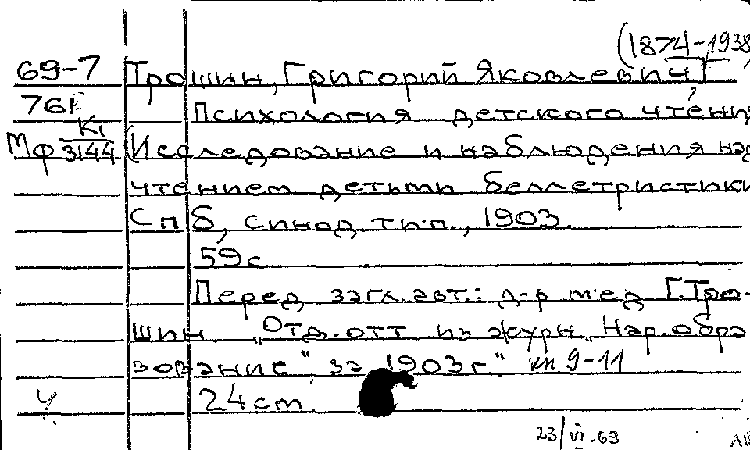 (1874-1938)
69-7 Трошин, Григорий Яковлевич
761 Психология детского чтени
Мф К1 3144 (Исследование и наблюдения над
чтением детьми беллетристики
Спб, синод. тип., 1903.
59с
Перед загл. авт.: д-р мед Г. Тро-
шин "Отд. отт из журн. Нар. обра
зование" за 1903г." № 9-11
24 см.
23/VI-69